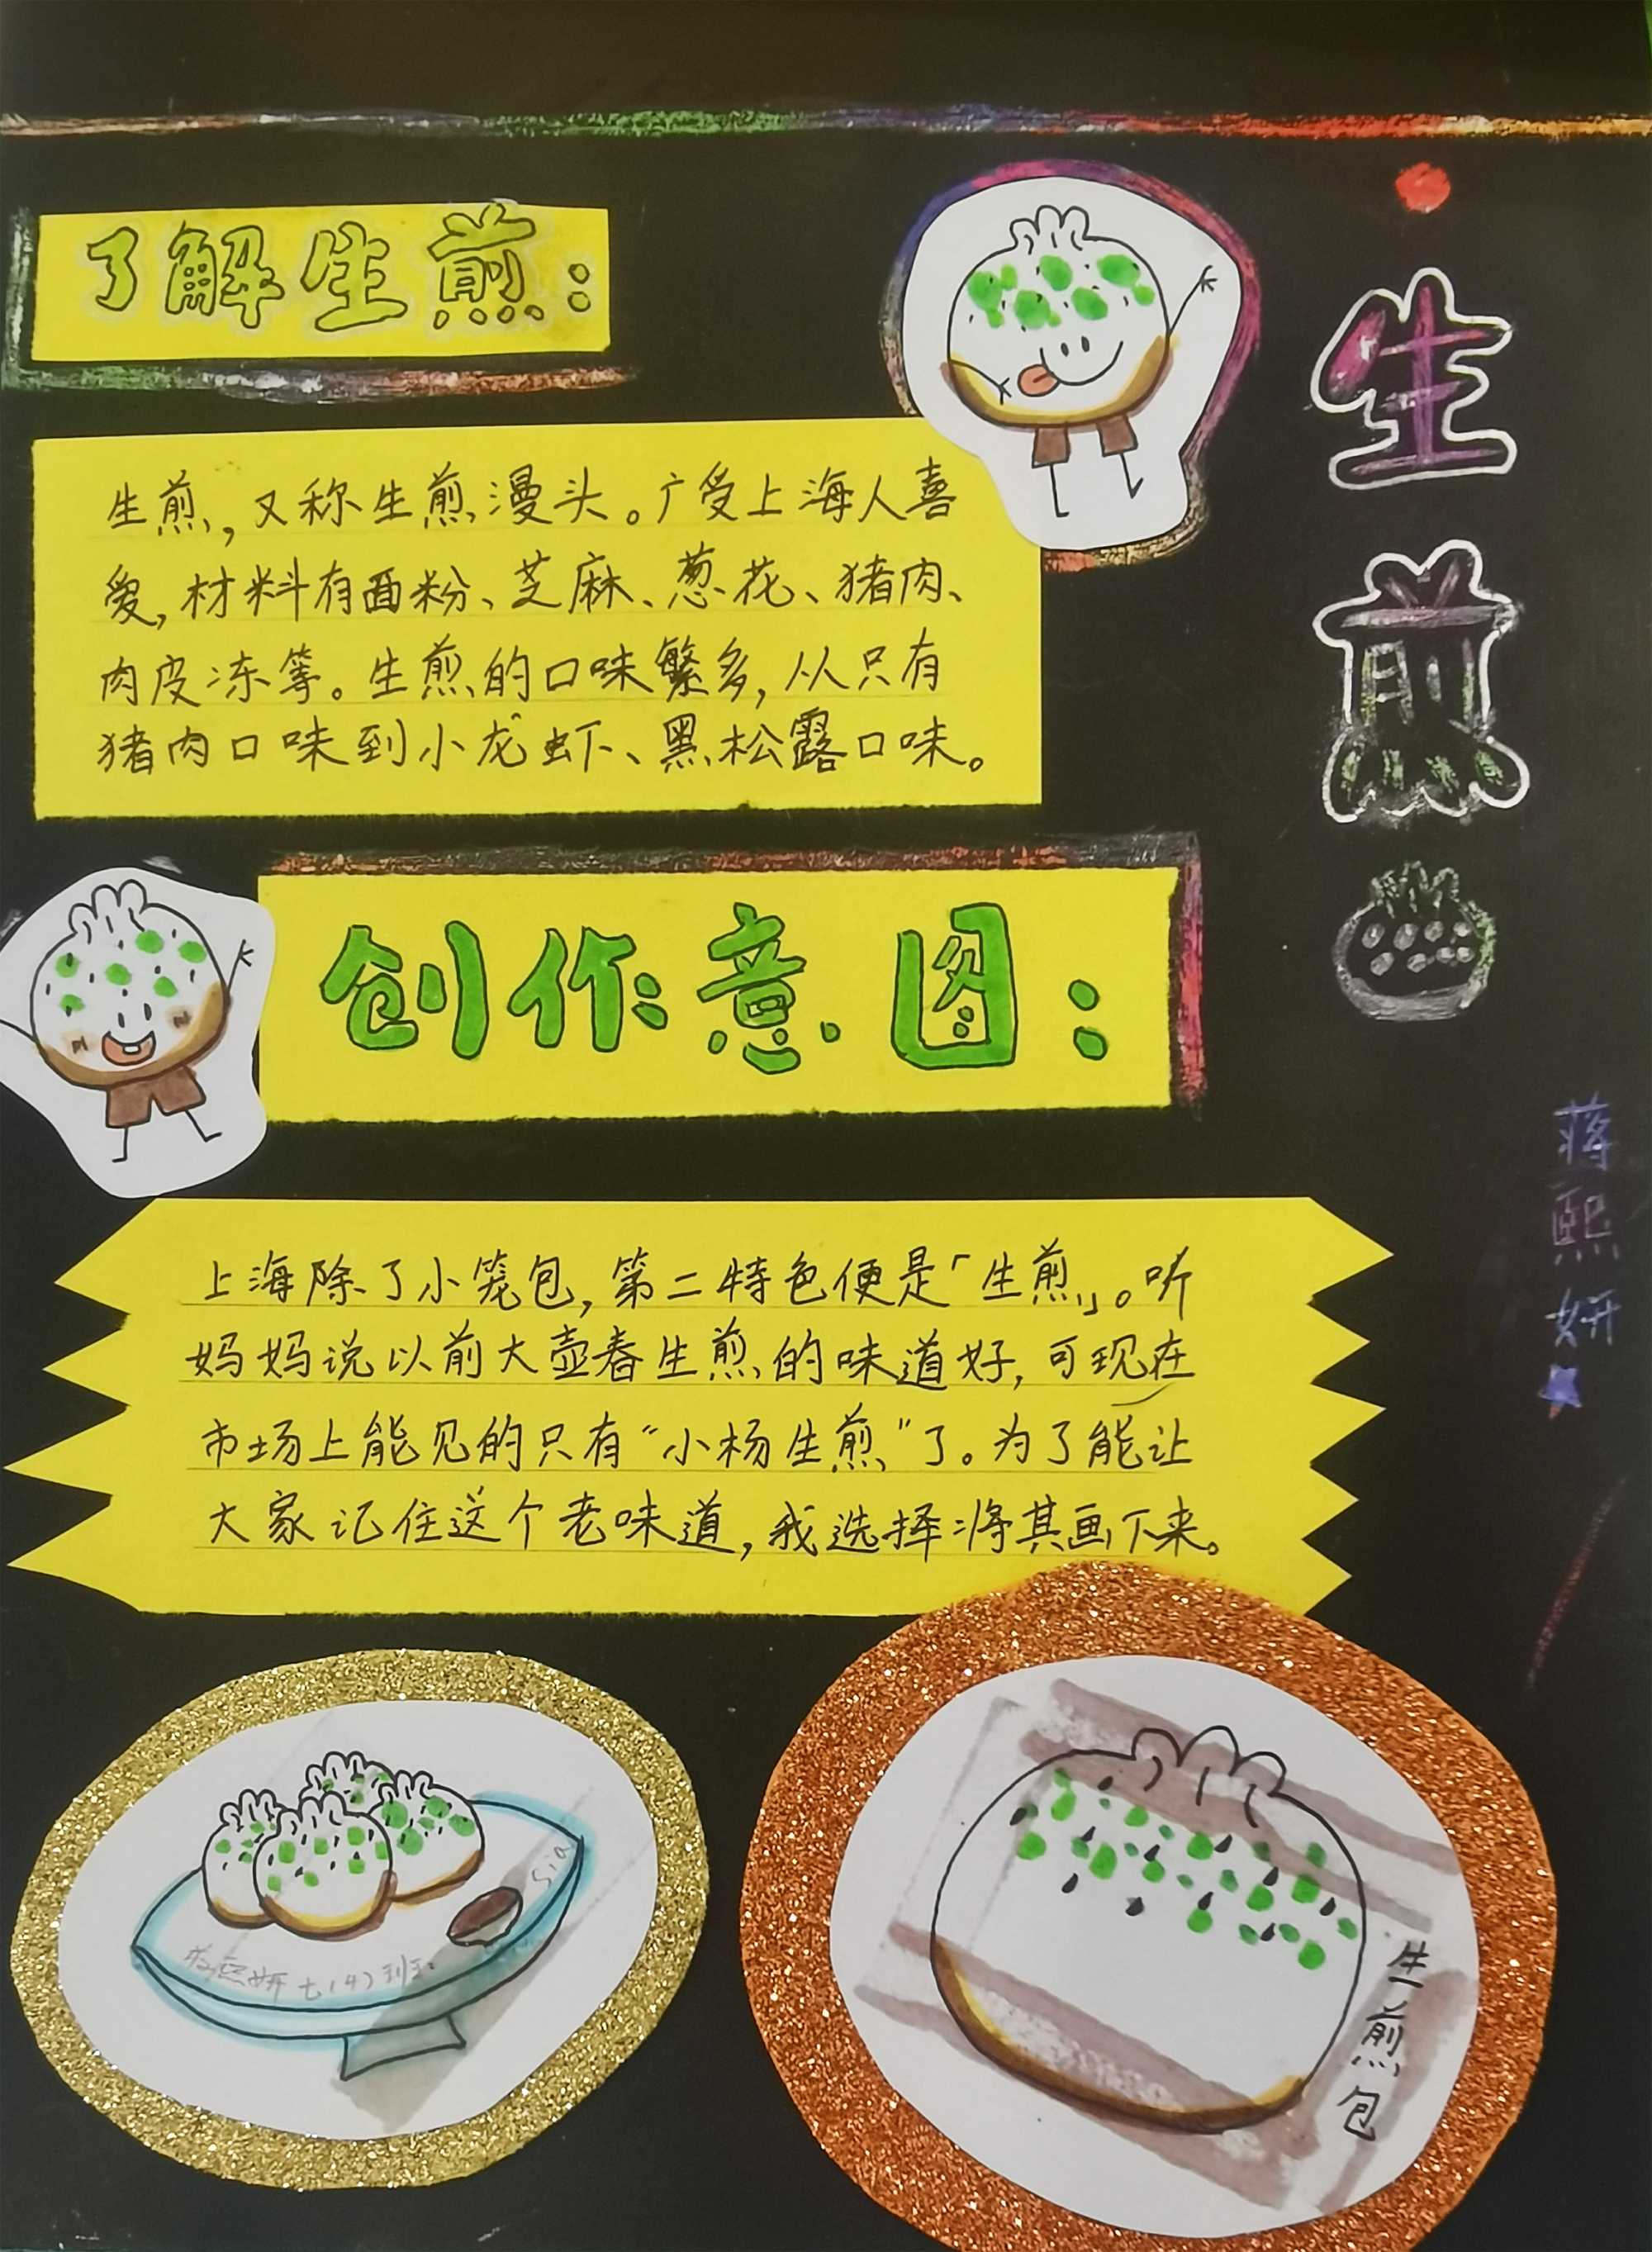 了解生煎：
生煎，又称生煎漫头。广受上海人喜
爱，材料有面粉、芝麻、葱花、猪肉、
肉皮冻等。生煎的口味繁多，从只有
猪肉口味到小龙虾、黑松露口味。
生煎
创作意图：
蒋熙妍
上海除了小笼包，第二特色便是「生煎」。听
妈妈说以前大壶春生煎的味道好，可现在
市场上能见的只有“小杨生煎”了。为了能让
大家记住这个老味道，我选择将其画下来。
sia
蒋熙妍七(4)班
生煎包